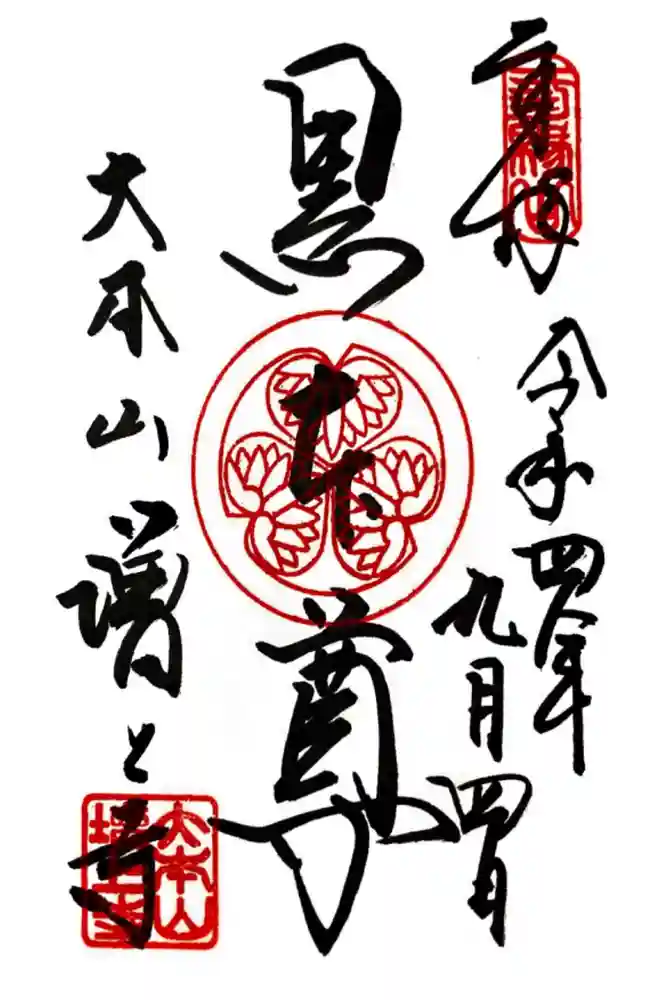 奉拝
令和四年
九月四日
黒本尊
大本山増上寺
大本山
増上寺